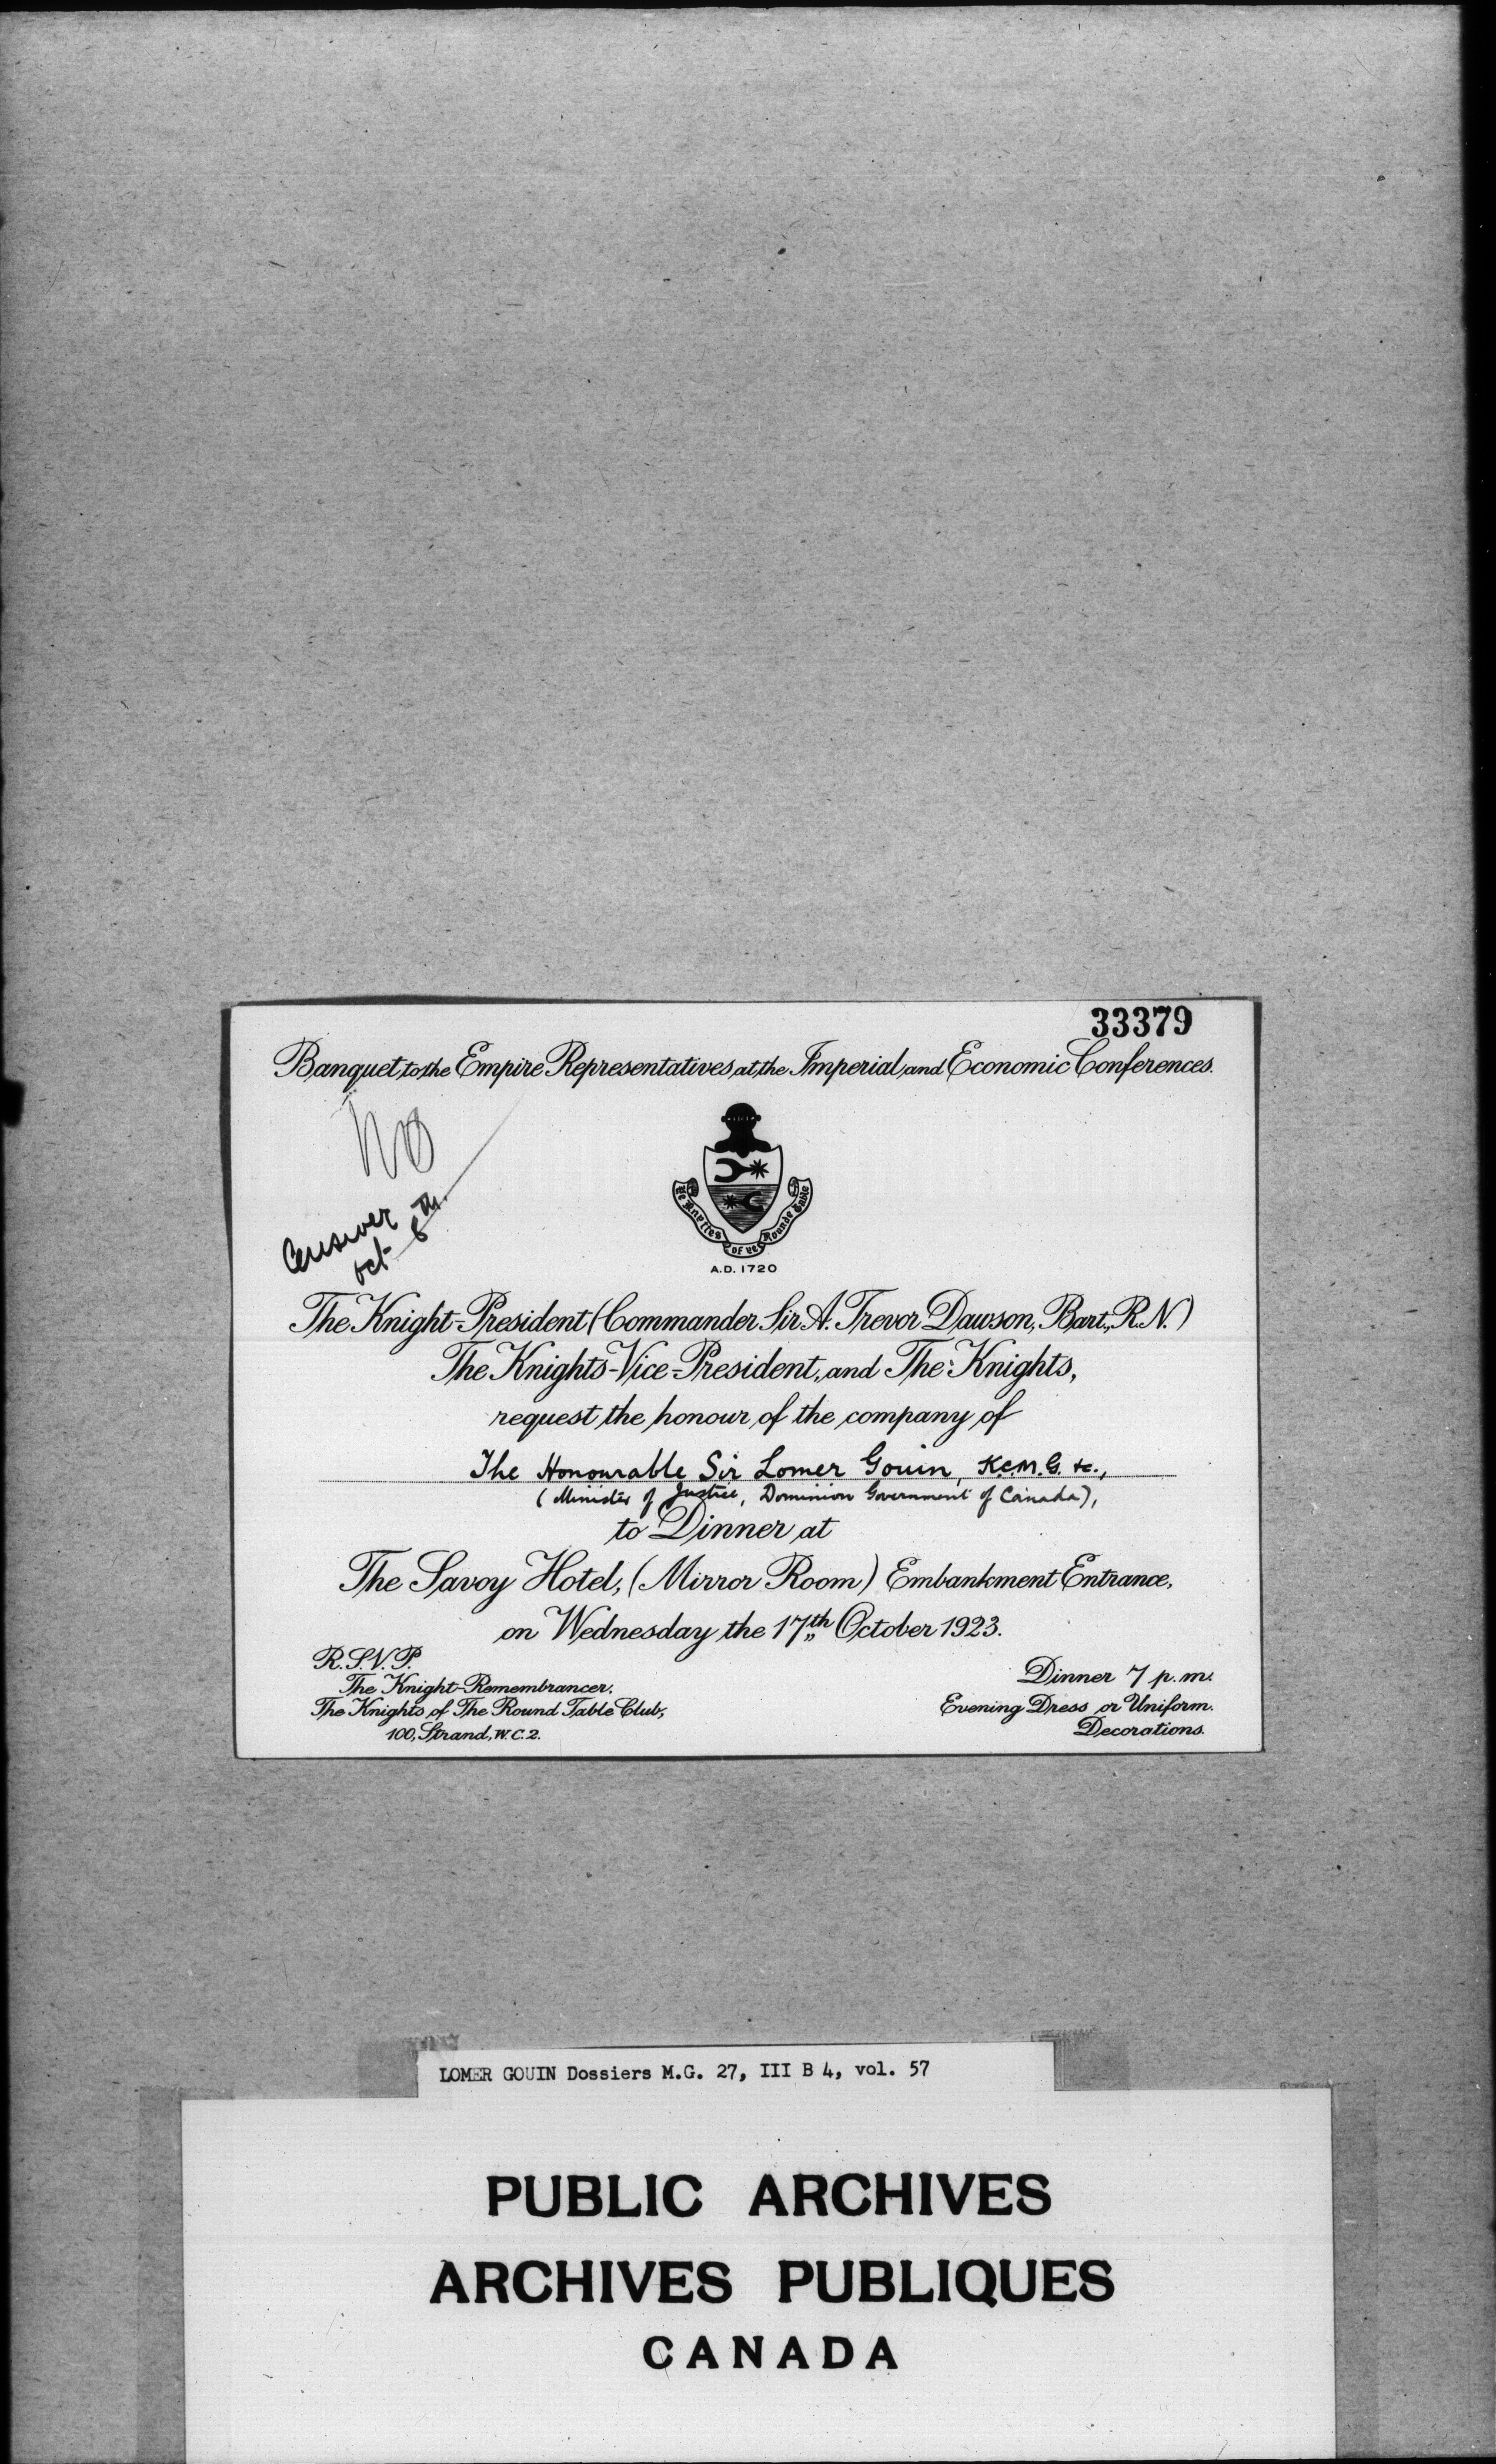 33379
Banquet to the Empire Representatives at the Imperial and Economic Conferences.
No
Answer
Oct 8th
Ye Knyttes of Ye Rounde Table
A.D. 1720
The Knight-President (Commander Sir A. Trevor Dawson, Bart., R.N.)
The Knights-Vice-President, and The Knights,
request the honour of the company of
The Honourable Sir Lomer Gouin, K.C.M.G. &c.,
(Minister of Justice, Dominion Government of Canada),
to Dinner at
The Savoy Hotel, (Mirror Room) Embankment Entrance,
on Wednesday the 17th October 1923.
R.S.V.P.
The Knight-Remembrancer,
The Knights of The Round Table Club,
100, Strand, W.C.2.
Dinner 7 p.m.
Evening Dress or Uniform.
Decorations.
LOMER GOUIN Dossiers M.G. 27, III B 4, vol. 57
PUBLIC ARCHIVES
ARCHIVES PUBLIQUES
CANADA